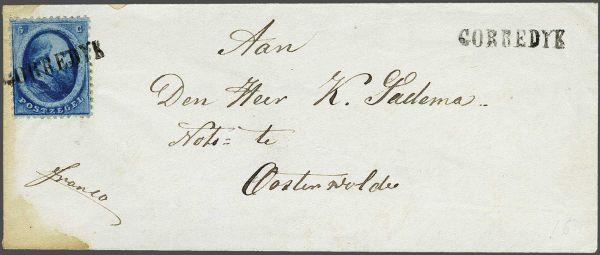 5 C
POSTZEGEL
GORREDYK
GORREDYK
Aan
Den Heer K. Sadema
Nots= te
Oosterwolde
franco